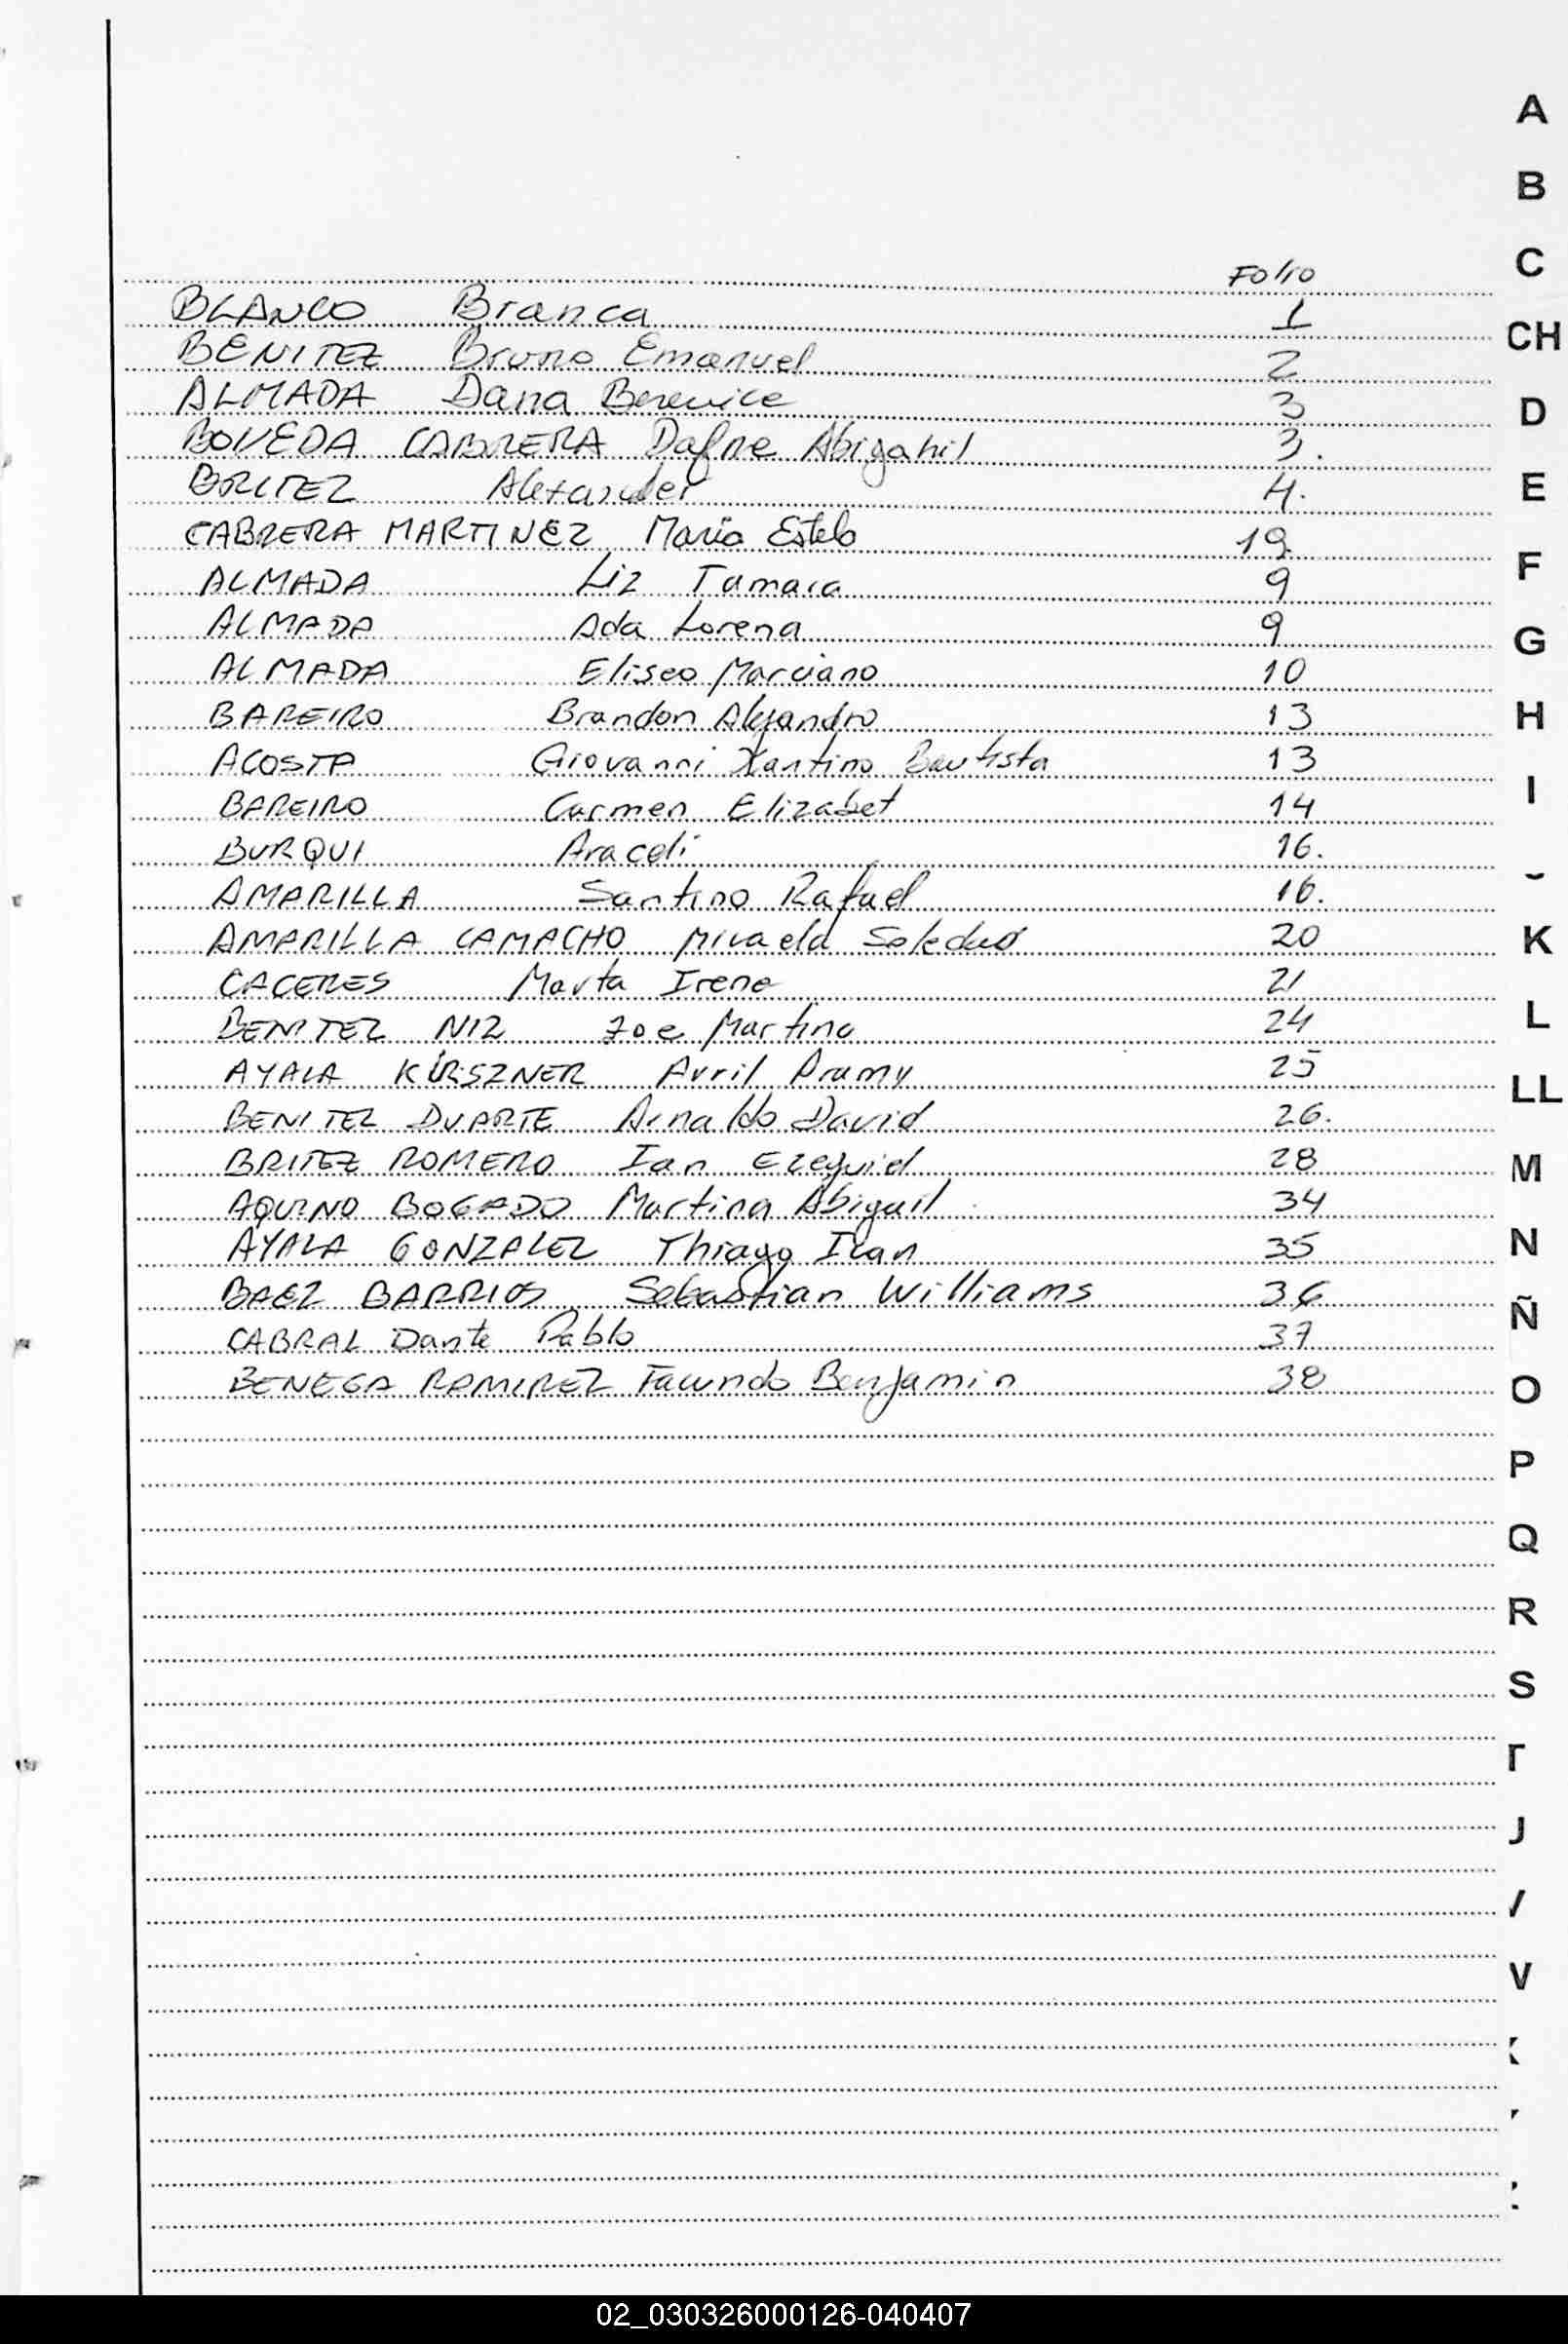 Folio
BLANCO Branca 1
BENITEZ Bruno Emanuel 2
ALMADA Dana Berenice 3
BOVEDA CABRERA Dafne Abigahil 3.
BRITEZ Alexander 4.
CABRERA MARTINEZ Maria Estela 19
ALMADA Liz Tamara 9
ALMADA Ada Lorena 9
ALMADA Eliseo Marciano 10
BAREIRO Brandon Alejandro 13
ACOSTA Giovanni Xantino Bautista 13
BAREIRO Carmen Elizabet 14
BURQUI Araceli 16.
AMARILLA Santino Rafael 16.
AMARILLA CAMACHO Micaela Soledad 20
CACERES Marta Irene 21
BENITEZ NIZ Zoe Martina 24
AYALA KIRSZNER Avril Aramy 25
BENITEZ DUARTE Arnaldo David 26.
BRITEZ ROMERO Ian Ezequiel 28
AQUINO BOGADO Martina Abigail 34
AYALA GONZALEZ Thiago Ivan 35
BAEZ BARRIOS Sebastian Williams 36
CABRAL Dante Pablo 37
BENEGA RAMIREZ Facundo Benjamin 38
A
B
C
CH
D
E
F
G
H
I
K
L
LL
M
N
Ñ
O
P
Q
R
S
V
02_030326000126-040407